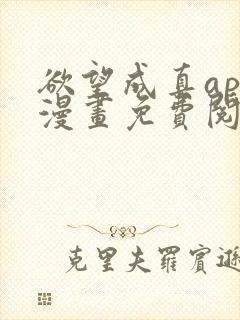 欲望成真ap
漫畫免費閱
克里夫羅賓遜